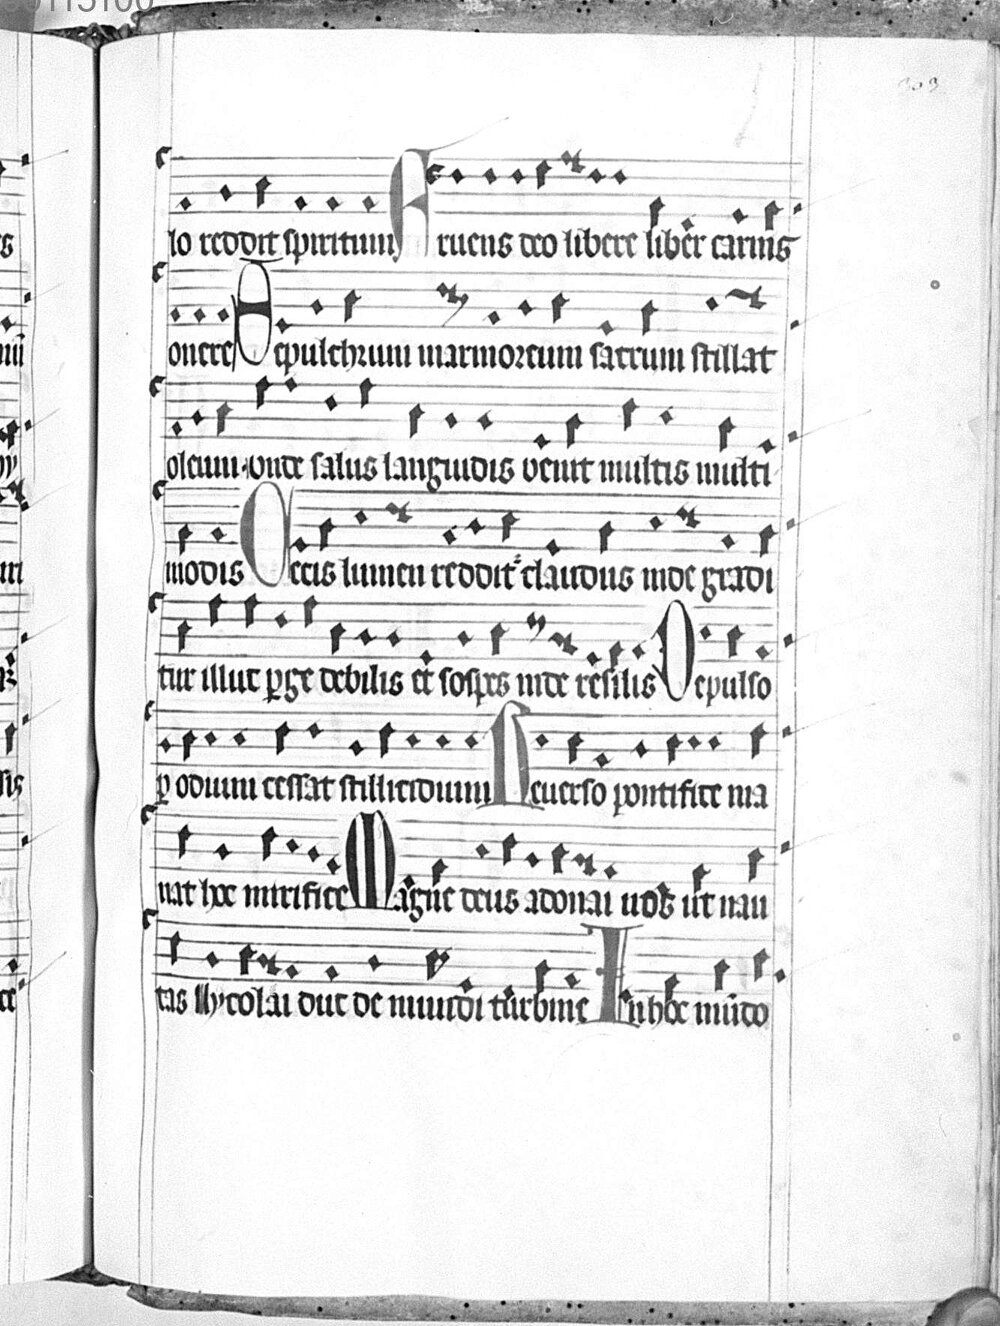 303
lo reddit spiritum Fruens deo libere liber carnis
onere Sepulchrum marmoreum sacrum stillat
oleum unde salus languidis venit multis multi
modis Cecis lumen reddit claudus inde gradi
tur illuc perge debilis et sospes inde resilis Depulso
per odium cessat stillicidium Reverso pontifice ma
nat hoc mirifice Magne deus adonai nos ut nau
tas Nycolai duc de mundi turbine In hoc mundo